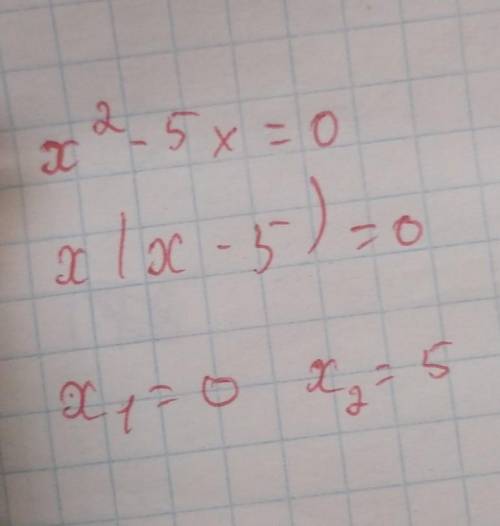 x² - 5x = 0
x(x - 5) = 0
x₁ = 0 x₂ = 5